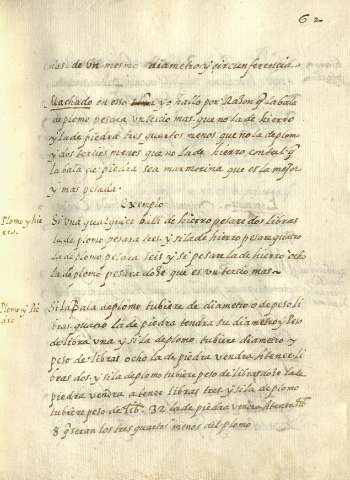 62
nas de un mesmo diametro y circunferencia
Machado en esso yo hallo por Razon q̃ la bala
de plomo pesara un tercio mas que no la de hierro
y la de piedra tres quartos menos que no la de plom
y dos tercios menos que no la de hierro, con tal q̃
la bala de piedra sea marmorina que es la mejor
y mas pesada.
Exemplo
Plomo y hie
rro.
Si una qualquier bala de hierro pesare dos libras
la de plomo pesara tres, y si la de hierro pesare quatro
la de plomo pesara seis y si pesare la de hierro ocho
la de plomo pesara doze que es un tercio mas
Plomo y Pie
Si la Bala de plomo tubiere de diametro o de peso li
bras quatro la de piedra tendra su diametro y Peso
de libra una y si la de plomo tubiere diametro y
peso de libras ocho la de piedra vendra A tener li
bras dos. y si la de plomo tubiere peso de libras doze la de
piedra vendra a tener libras tres. y si la de plomo
tubiere peso de lib. 32 la de piedra vendra A tener lib
8 q̃ seran los tres quartos menos del plomo